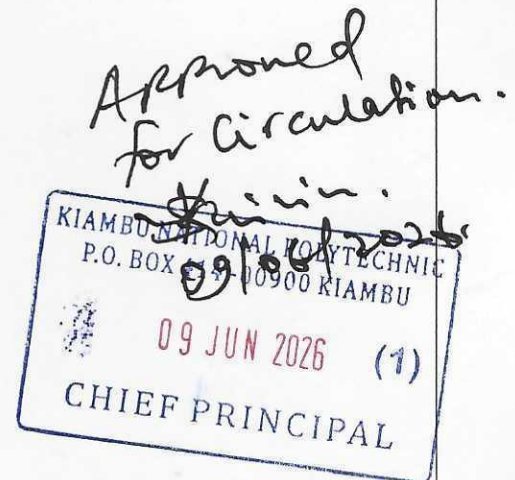 Approved
for Circulation.
09/06/2026
KIAMBU NATIONAL POLYTECHNIC
P.O. BOX 00900 KIAMBU
09 JUN 2026 (1)
CHIEF PRINCIPAL